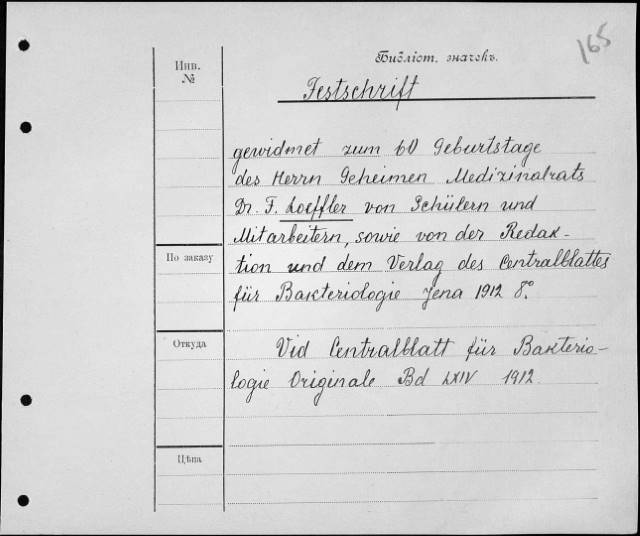 165
Библіот. значекъ.
Инв.
№
Festschrift
gewidmet zum 60 Geburtstage
des Herrn Geheimen Medizinalrats
Dr. F. Loeffler von Schülern und
Mitarbeitern, sowie von der Redak-
tion und dem Verlag des Centralblattes
für Bakteriologie Jena 1912 8°.
По заказу
Откуда
Vid Centralblatt für Bakterio-
logie Originale Bd LXIV 1912.
Цѣна